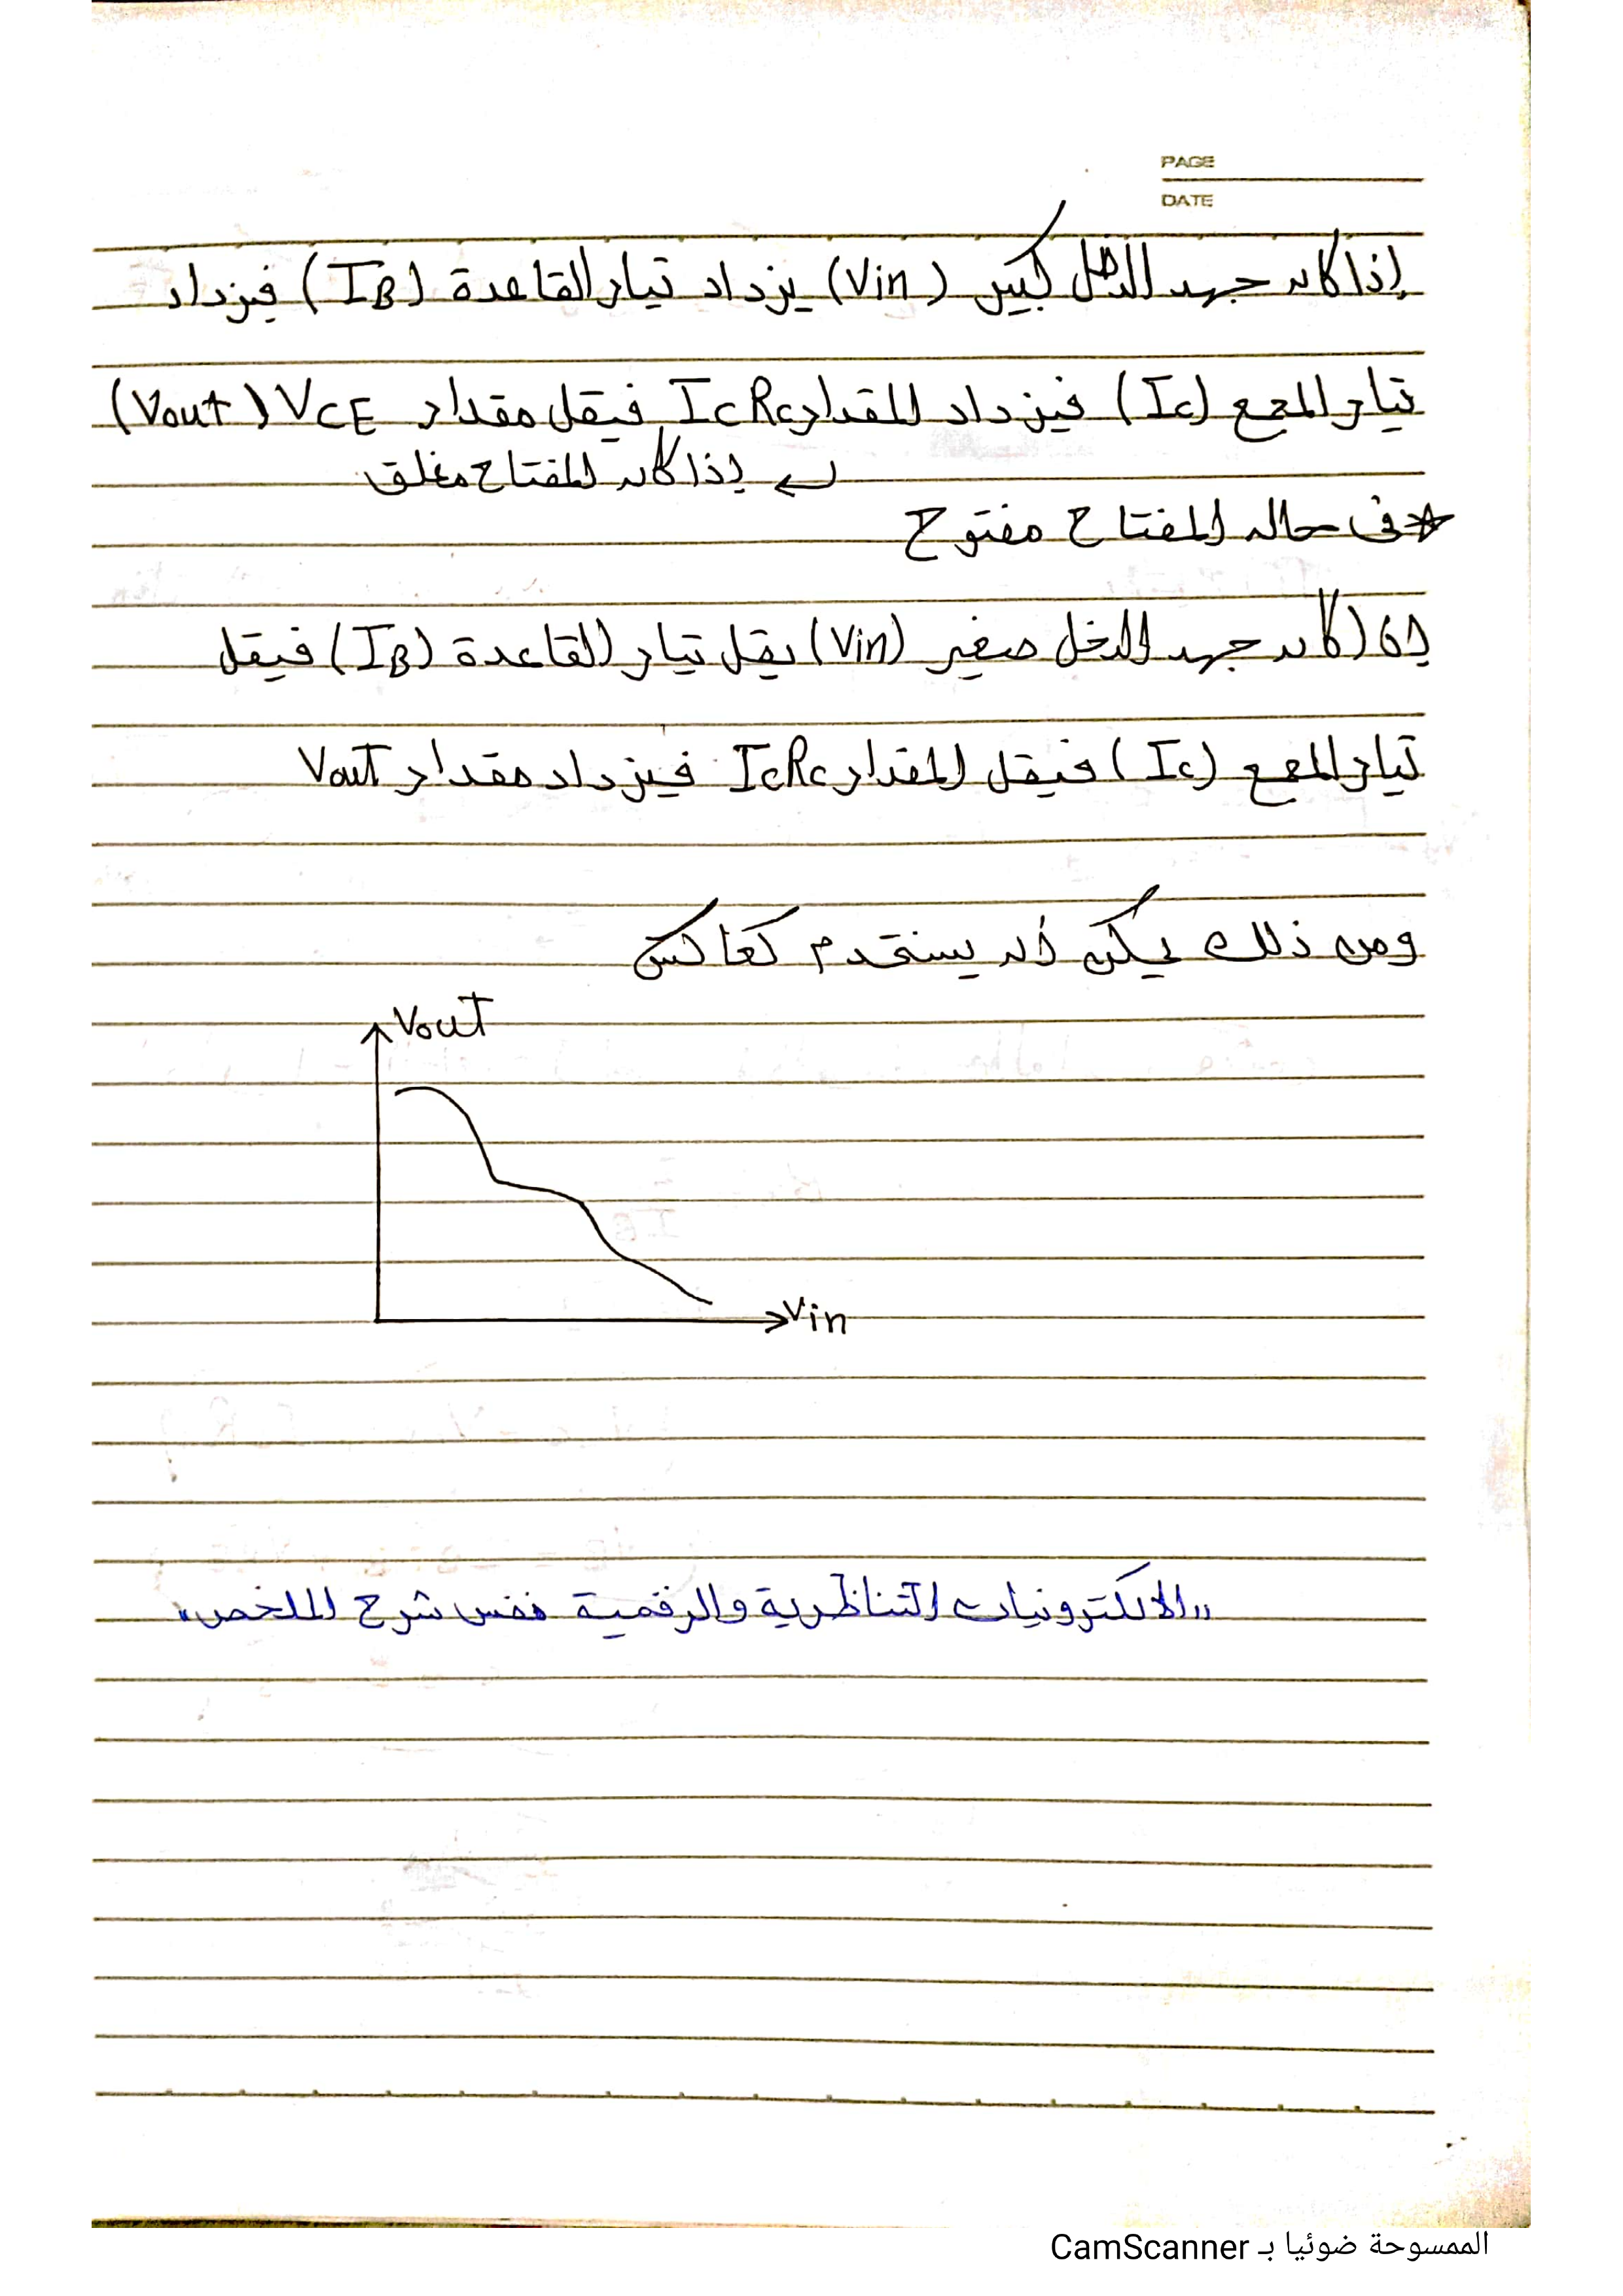 PAGE
DATE
إذا كان جهد الدخل كبير (Vin) يزداد تيار القاعدة (IB) فيزداد
تيار المجمع (Ic) فيزداد المقدار IcRc فيقل مقدار VCE (Vout)
إذا كان المفتاح مغلق
☆ في حاله المفتاح مفتوح
إذا كان جهد الدخل صغير (Vin) يقل تيار القاعدة (IB) فيقل
تيار المجمع (Ic) فيقل المقدار IcRc فيزداد مقدار Vout
ومن ذلك يمكن أن يستخدم كعاكس
Vout
Vin
"الالكترونيات التناظرية والرقمية نفس شرح الملخص"
الممسوحة ضوئيا بـ CamScanner